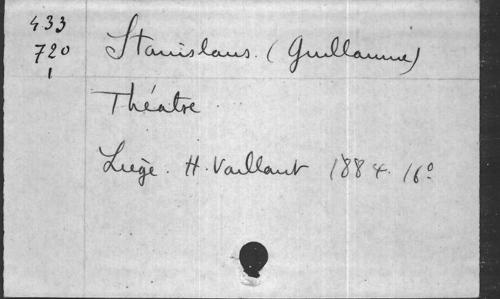 433
720
1
Stanislaus. (Guillaume)
Théatre
Liège. H. Vaillant 1884. 16°